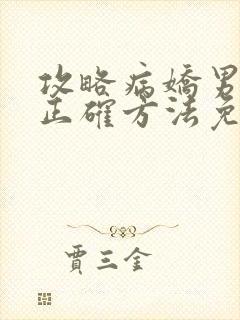 攻略病嬌男
正確方法免
賈三金